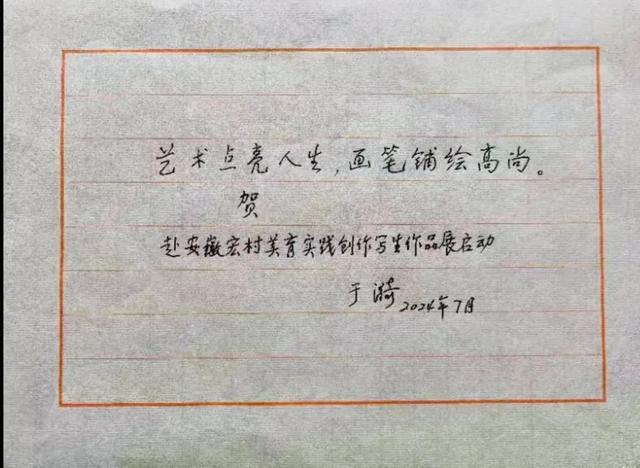 艺术点亮人生，画笔铺绘高尚。
贺
赴安徽宏村美育实践创作写生作品展启动
于漪
2024年7月